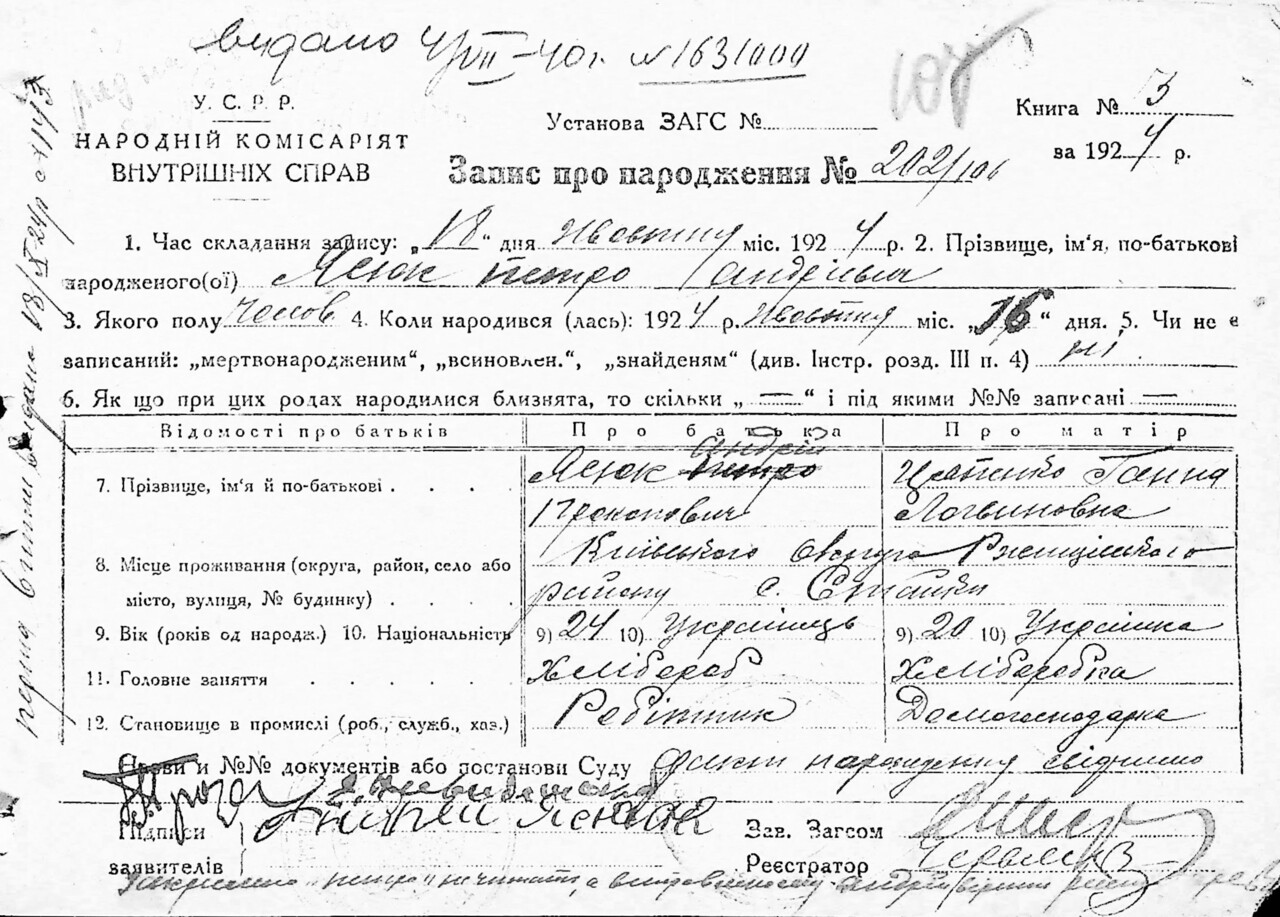 видано 4/VII–40г. №1631000
107
У. С. Р. Р.
НАРОДНІЙ КОМІСАРІЯТ
ВНУТРІШНІХ СПРАВ
Установа ЗАГС №
Книга № 3
за 1924 р.
Запис про народження № 202/106
1. Час складання запису: „18“ дня Жовтня міс. 1924 р. 2. Прізвище, ім'я, по-батькові
народженого(ої) Ясюк Петро Андрієвич
3. Якого полу Чолов 4. Коли народився (лась): 1924 р. Жовтня міс. „16“ дня. 5. Чи не є
записаний: „мертвонародженим“, „всиновлен.“, „знайденям“ (див. Інстр. розд. III п. 4) ні.
6. Як що при цих родах народилися близнята, то скільки „ — “ і під якими №№ записані —
Відомості про батьків Про батька Про матір
7. Прізвище, ім'я й по-батькові . . . . Ясюк Петро Андрій Ганна
Прокопович Логвиновна
8. Місце проживання (округа, район, село або Київського Округа Ржищівського
місто, вулиця, № будинку) . . . . району с. Стайки
9. Вік (років од народж.) 10. Національність 9) 24 10) Українець 9) 20 10) Українка
11. Головне заняття . . . . . Хлібороб Хліборобка
12. Становище в промислі (роб., служб., хаз.) Робітник Домогосподарка
Назви и №№ документів або постанови Суду факт народження
Підписи Андрей Ясюк Зав. Загсом
заявителів Реєстратор
Закреслено „Петро“ не читати, а Андрій вірити
перша випись видана 18/X-24р с №1143